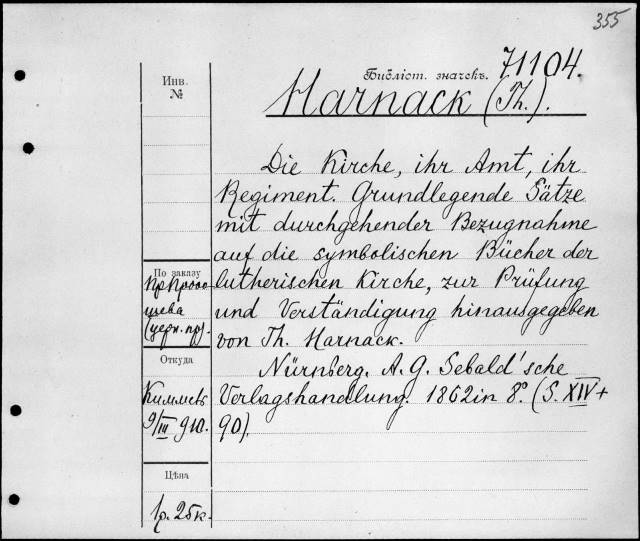 355
Библіот. значекъ. 71104.
Инв.
№
Harnack (Th.).
Die Kirche, ihr Amt, ihr
Regiment. Grundlegende Sätze
mit durchgehender Bezugnahme
auf die symbolischen Bücher der
lutherischen Kirche, zur Prüfung
und Verständigung hinausgegeben
von Th. Harnack.
Nürnberg. A. G. Sebald'sche
Verlagshandlung. 1862 in 8º. (S. XIV+
90).
По заказу
пр.
шева
(церк. пр).
Откуда
Киммель
9/III 910.
Цѣна
1р. 25к.